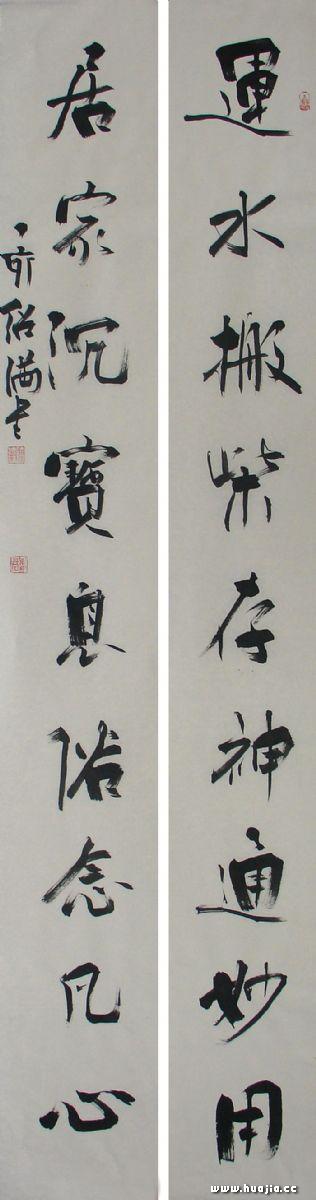 運水搬柴存神通妙用
居家沉寶息俗念凡心
www.huajia.cc